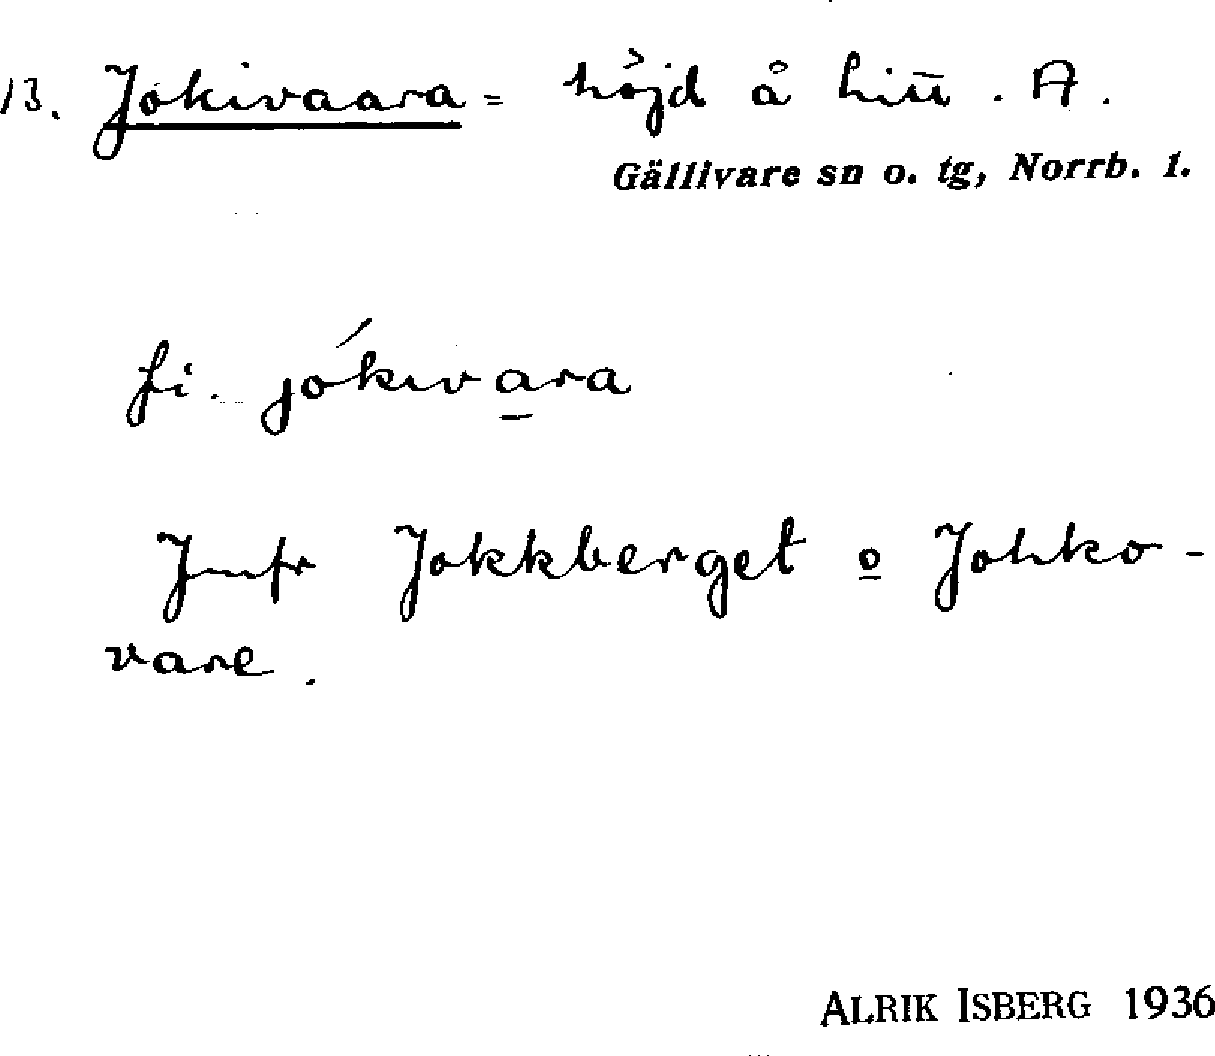 13. Jokivaara = höjd å litt. A.
Gällivare sn o. tg, Norrb. l.
fi. jókivara
Jmfr Jokkberget o Johko-
vare.
ALRIK ISBERG 1936